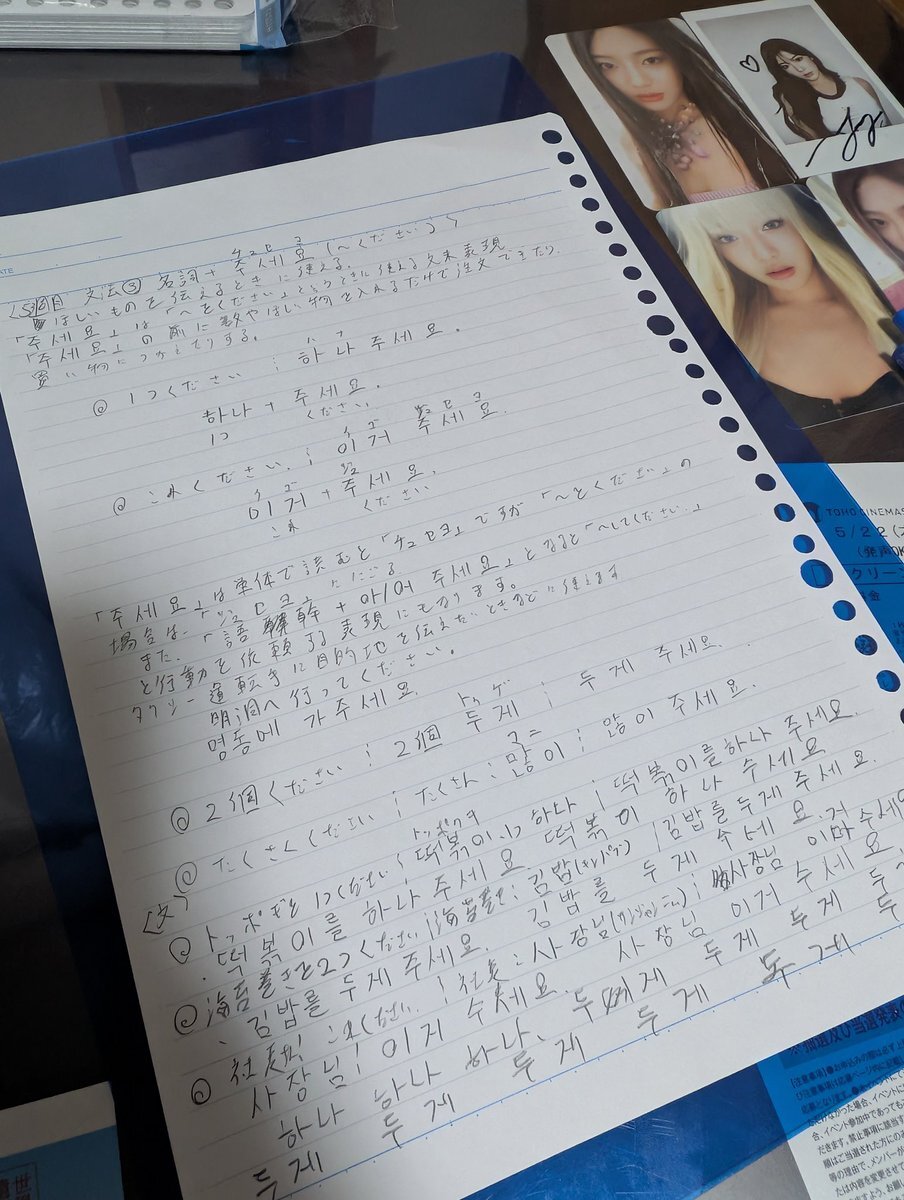 文法③ 名詞 + 주세요 (〜ください)
チュセヨ
ほしいものを伝えるときに使える
「주세요」は「〜をください」というときに使える文末表現
「주세요」の前に数やほしい物を入れるだけで注文できたり、
買い物につかえたりする。
◎ 1つください ; 하나 주세요.
ハナ
하나 + 주세요.
1つ ください
◎ これください. ; 이거 주세요.
イゴ チュセヨ
이거 + 주세요.
イゴ ジュ
これ ください
「주세요」は単体で読むと「チュセヨ」ですが「〜をください」の
場合は「ジュセヨ」ににごる
また、「語幹 + 아/어 주세요」となると「〜してください.」
と行動を依頼する表現にもなります。
タクシー運転手に目的地を伝えたいときなどに使えます
明洞へ行ってください。
명동에 가주세요.
◎ 2個ください ; 2個 두게 ; 두게 주세요.
トゥゲ
◎ たくさくください ; たくさん ; 많이 ; 많이 주세요.
マニ
<文>
◎ トッポギを1つください ; 떡볶이 1つ 하나 ; 떡볶이를 하나 주세요.
떡볶이를 하나 주세요 떡볶이 하나 주세요
◎ 海苔巻きを2つください ; 海苔巻き ; 김밥 (キンパプ) ; 김밥를 두게 주세요.
김밥를 두게 주세요. 김밥를 두게 주세요.
◎ 社長! これください. ; 社長 ; 사장님 (サジャンニム) ; 사장님 이거 주세
사장님! 이거 주세요. 사장님 이거 주세요
하나 하나 하나. 두게 두게 두게
두게 두게 두게 두게 두게
TOHO CINEMAS
5/22
クリーン
金
※抽選及び当選発表